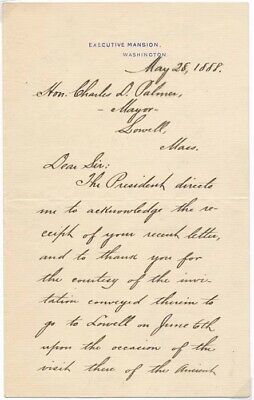 EXECUTIVE MANSION,
WASHINGTON.
May 28, 1888.
Hon. Charles D. Palmer,
- Mayor -
Lowell,
Mass.
Dear Sir:
The President directs
me to acknowledge the re-
ceipt of your recent letter,
and to thank you for
the courtesy of the invi-
tation conveyed therein to
go to Lowell on June 6th
upon the occasion of the
visit there of the Ancient